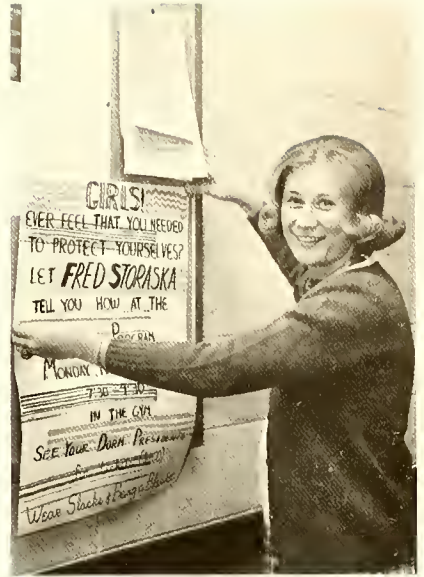 GIRLS!
EVER FEEL THAT YOU NEEDED
TO PROTECT YOURSELVES?
LET FRED STORASKA
TELL YOU HOW AT THE
PROGRAM
MONDAY
7:30 - 9:30
IN THE GYM
SEE YOUR DORM PRESIDENTS
Wear Slacks & Bring a Blanket